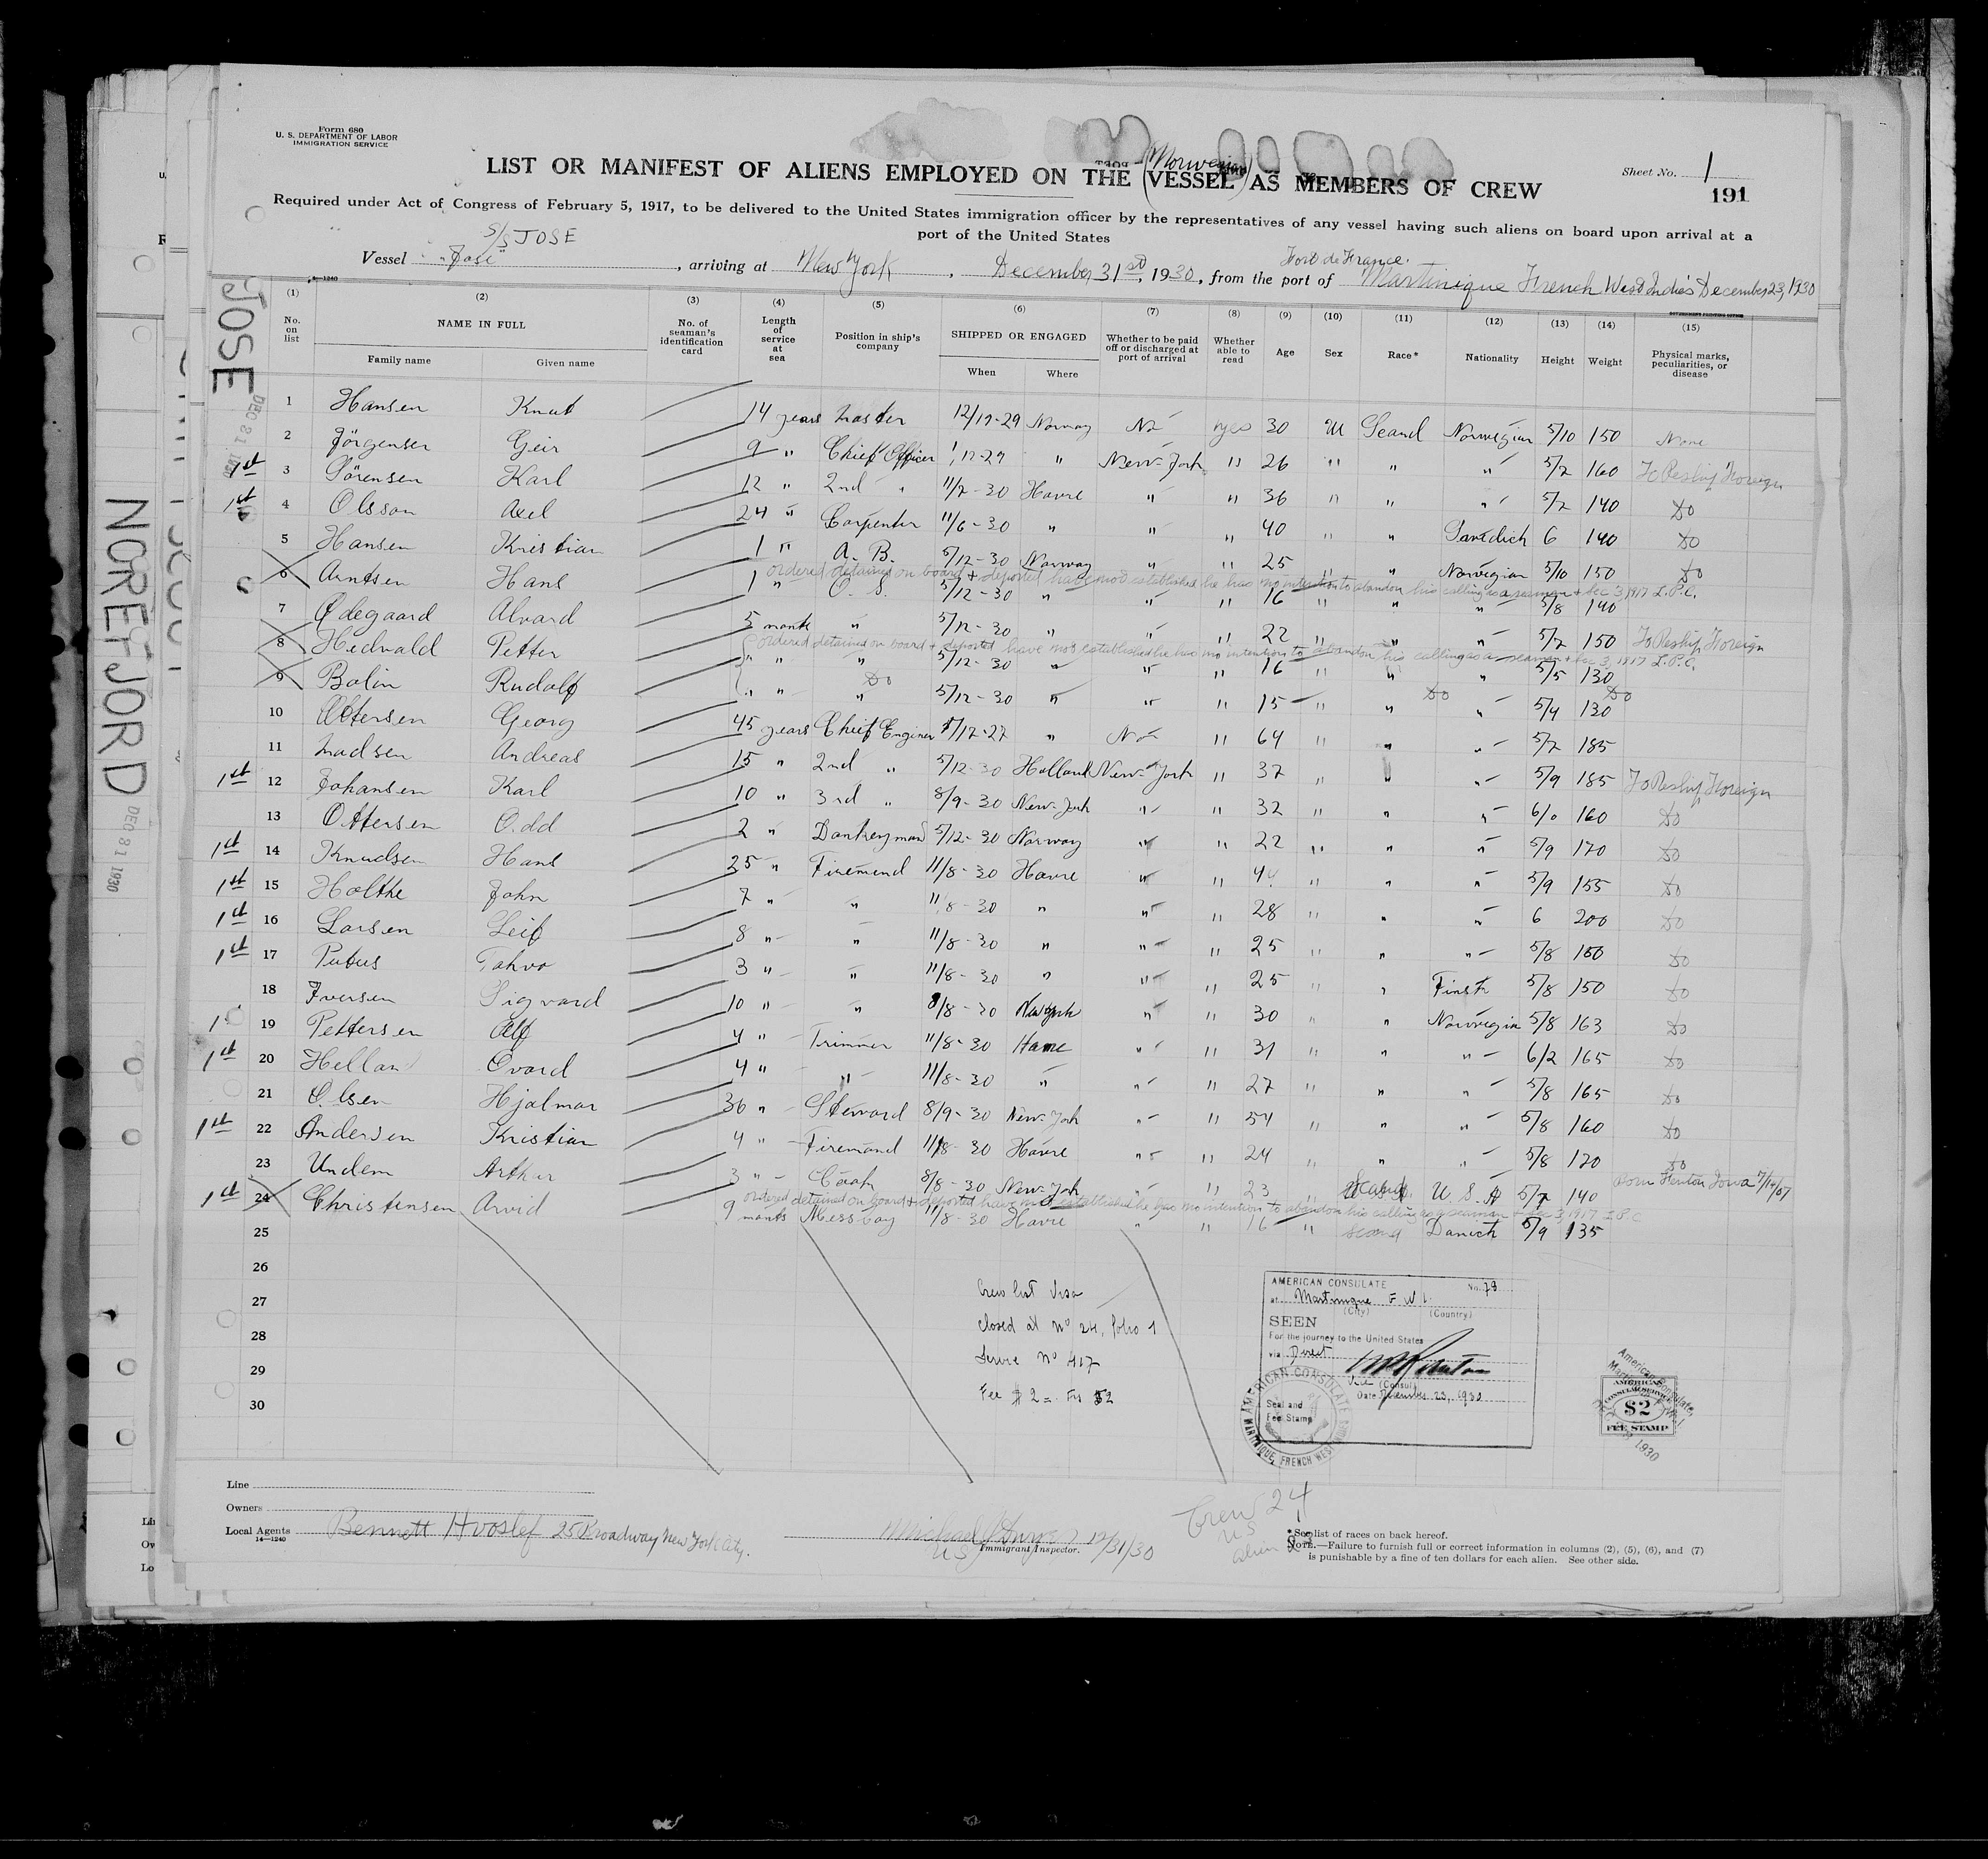 Form 680
U. S. DEPARTMENT OF LABOR
IMMIGRATION SERVICE
Sheet No. 1
191
(Norwegian)
LIST OR MANIFEST OF ALIENS EMPLOYED ON THE VESSEL AS MEMBERS OF CREW
Required under Act of Congress of February 5, 1917, to be delivered to the United States immigration officer by the representatives of any vessel having such aliens on board upon arrival at a
port of the United States
S/S JOSE
Fort de France.
Vessel "José", arriving at New York, December 31st, 1930, from the port of Martinique French West Indies December 23, 1930
14—1240
GOVERNMENT PRINTING OFFICE
(1) (2) (3) (4) (5) (6) (7) (8) (9) (10) (11) (12) (13) (14) (15)
No. on list
NAME IN FULL
Family name
Given name
No. of seaman's identification card
Length of service at sea
Position in ship's company
SHIPPED OR ENGAGED
When
Where
Whether to be paid off or discharged at port of arrival
Whether able to read
Age
Sex
Race*
Nationality
Height
Weight
Physical marks, peculiarities, or disease
JOSE
DEC 31 1930
NOREFJORD
DEC 31 1930
1 Hansen Knut 14 years Master 12/19-29 Norway No yes 30 M Scand Norwegian 5/10 150 None
2 Jörgensen Geir 9 " Chief Officer 12-29 " New-York " 26 " " " 5/7 160 To Reship Foreign
1st 3 Sörensen Karl 12 " 2nd " 11/7-30 Havre " " 36 " " " 5/7 140 Do
1st 4 Olsson Axel 24 " Carpenter 11/6-30 " " " 40 " " Swedich 6 140 Do
5 Hansen Kristian 1 " A. B. 5/12-30 Norway " " 25 " " Norvegian 5/10 150 Do
ordered detained on board + deported have not established he has no intention to abandon his calling as a seaman + Sec 3, 1917 L.P.C.
6 Arntsen Hans 1 " O. S. 5/12-30 " " " 16 " " " 5/8 140
7 Ødegaard Alvard 5 month " 5/12-30 " " " 22 " " " 5/7 150 To Reship Foreign
ordered detained on board + deported have not established he has no intention to abandon his calling as a seaman + Sec 3, 1917 L.P.C.
8 Hedvald Petter " " " 5/12-30 " " " 16 " " " 5/5 130
Do Do Do
9 Bolin Rudolf " " " 5/12-30 " " " 15 " " " 5/4 130
10 Ottersen Georg 45 years Chief Enginer 5/12-27 " No " 64 " " " 5/7 185
11 Madsen Andreas 15 " 2nd " 5/12-30 Holland New-York " 37 " " " 5/9 185 To Reship Foreign
1st 12 Johansen Karl 10 " 3rd " 8/9-30 New-York " " 32 " " " 6/0 160 Do
13 Ottersen Odd 2 " Donkeyman 5/12-30 Norway " " 22 " " " 5/9 170 Do
1st 14 Knudsen Hans 25 " Firemend 11/8-30 Havre " " 44 " " " 5/9 155 Do
1st 15 Holthe John 7 " " 11/8-30 " " " 28 " " " 6 200 Do
1st 16 Larsen Leif 8 " " 11/8-30 " " " 25 " " " 5/8 150 Do
1st 17 Tahvo 3 " " 11/8-30 " " " 25 " " 5/8 150 Do
18 Iversen Sigvard 10 " " 8/8-30 New York " " 30 " " Norvegin 5/8 163 Do
19 Pettersen Alf 4 " Trimmer 11/8-30 Havre " " 31 " " " 6/2 165 Do
1st 20 Helland Ovard 4 " " 11/8-30 " " " 27 " " " 5/8 165 Do
21 Olsen Hjalmar 36 " Steward 8/9-30 New-York " " 54 " " " 5/8 160 Do
1st 22 Andersen Kristian 4 " Firemand 11/8-30 Havre " " 24 " " " 5/8 170 Do
23 Undem Arthur 3 " Cook 8/8-30 New-York " 23 " Scand U. S. A 5/7 140 Born Fenton Iowa 7/14/07
ordered detained on board + deported have not established he has no intention to abandon his calling as a seaman + Sec 3, 1917 L.P.C.
1st 24 Christensen Arvid 9 month Messboy 11/8-30 Havre " " 16 " Scand Danich 5/9 135
25
26
27
28
29
30
Crew list visa
closed at No 24, folio 1
Service No 417
Fee $2 = Frs 52
AMERICAN CONSULATE No. 79
at Martinique F W I.
(City) (Country)
SEEN
For the journey to the United States
via Direct
Vice (Consul)
Date December 23, 1930
Seal and
Fee Stamp
AMERICAN CONSULATE MARTINIQUE, FRENCH WEST INDIES
American Consulate,
1930
AMERICAN
CONSULAR SERVICE
$2
FEE STAMP
Line
Owners
Local Agents Bennett Hvoslef 25 Broadway New York City.
14—1240
Michael 12/31/30
US Immigrant Inspector.
Crew 24
US
alien
* See list of races on back hereof.
NOTE.—Failure to furnish full or correct information in columns (2), (5), (6), and (7)
is punishable by a fine of ten dollars for each alien. See other side.